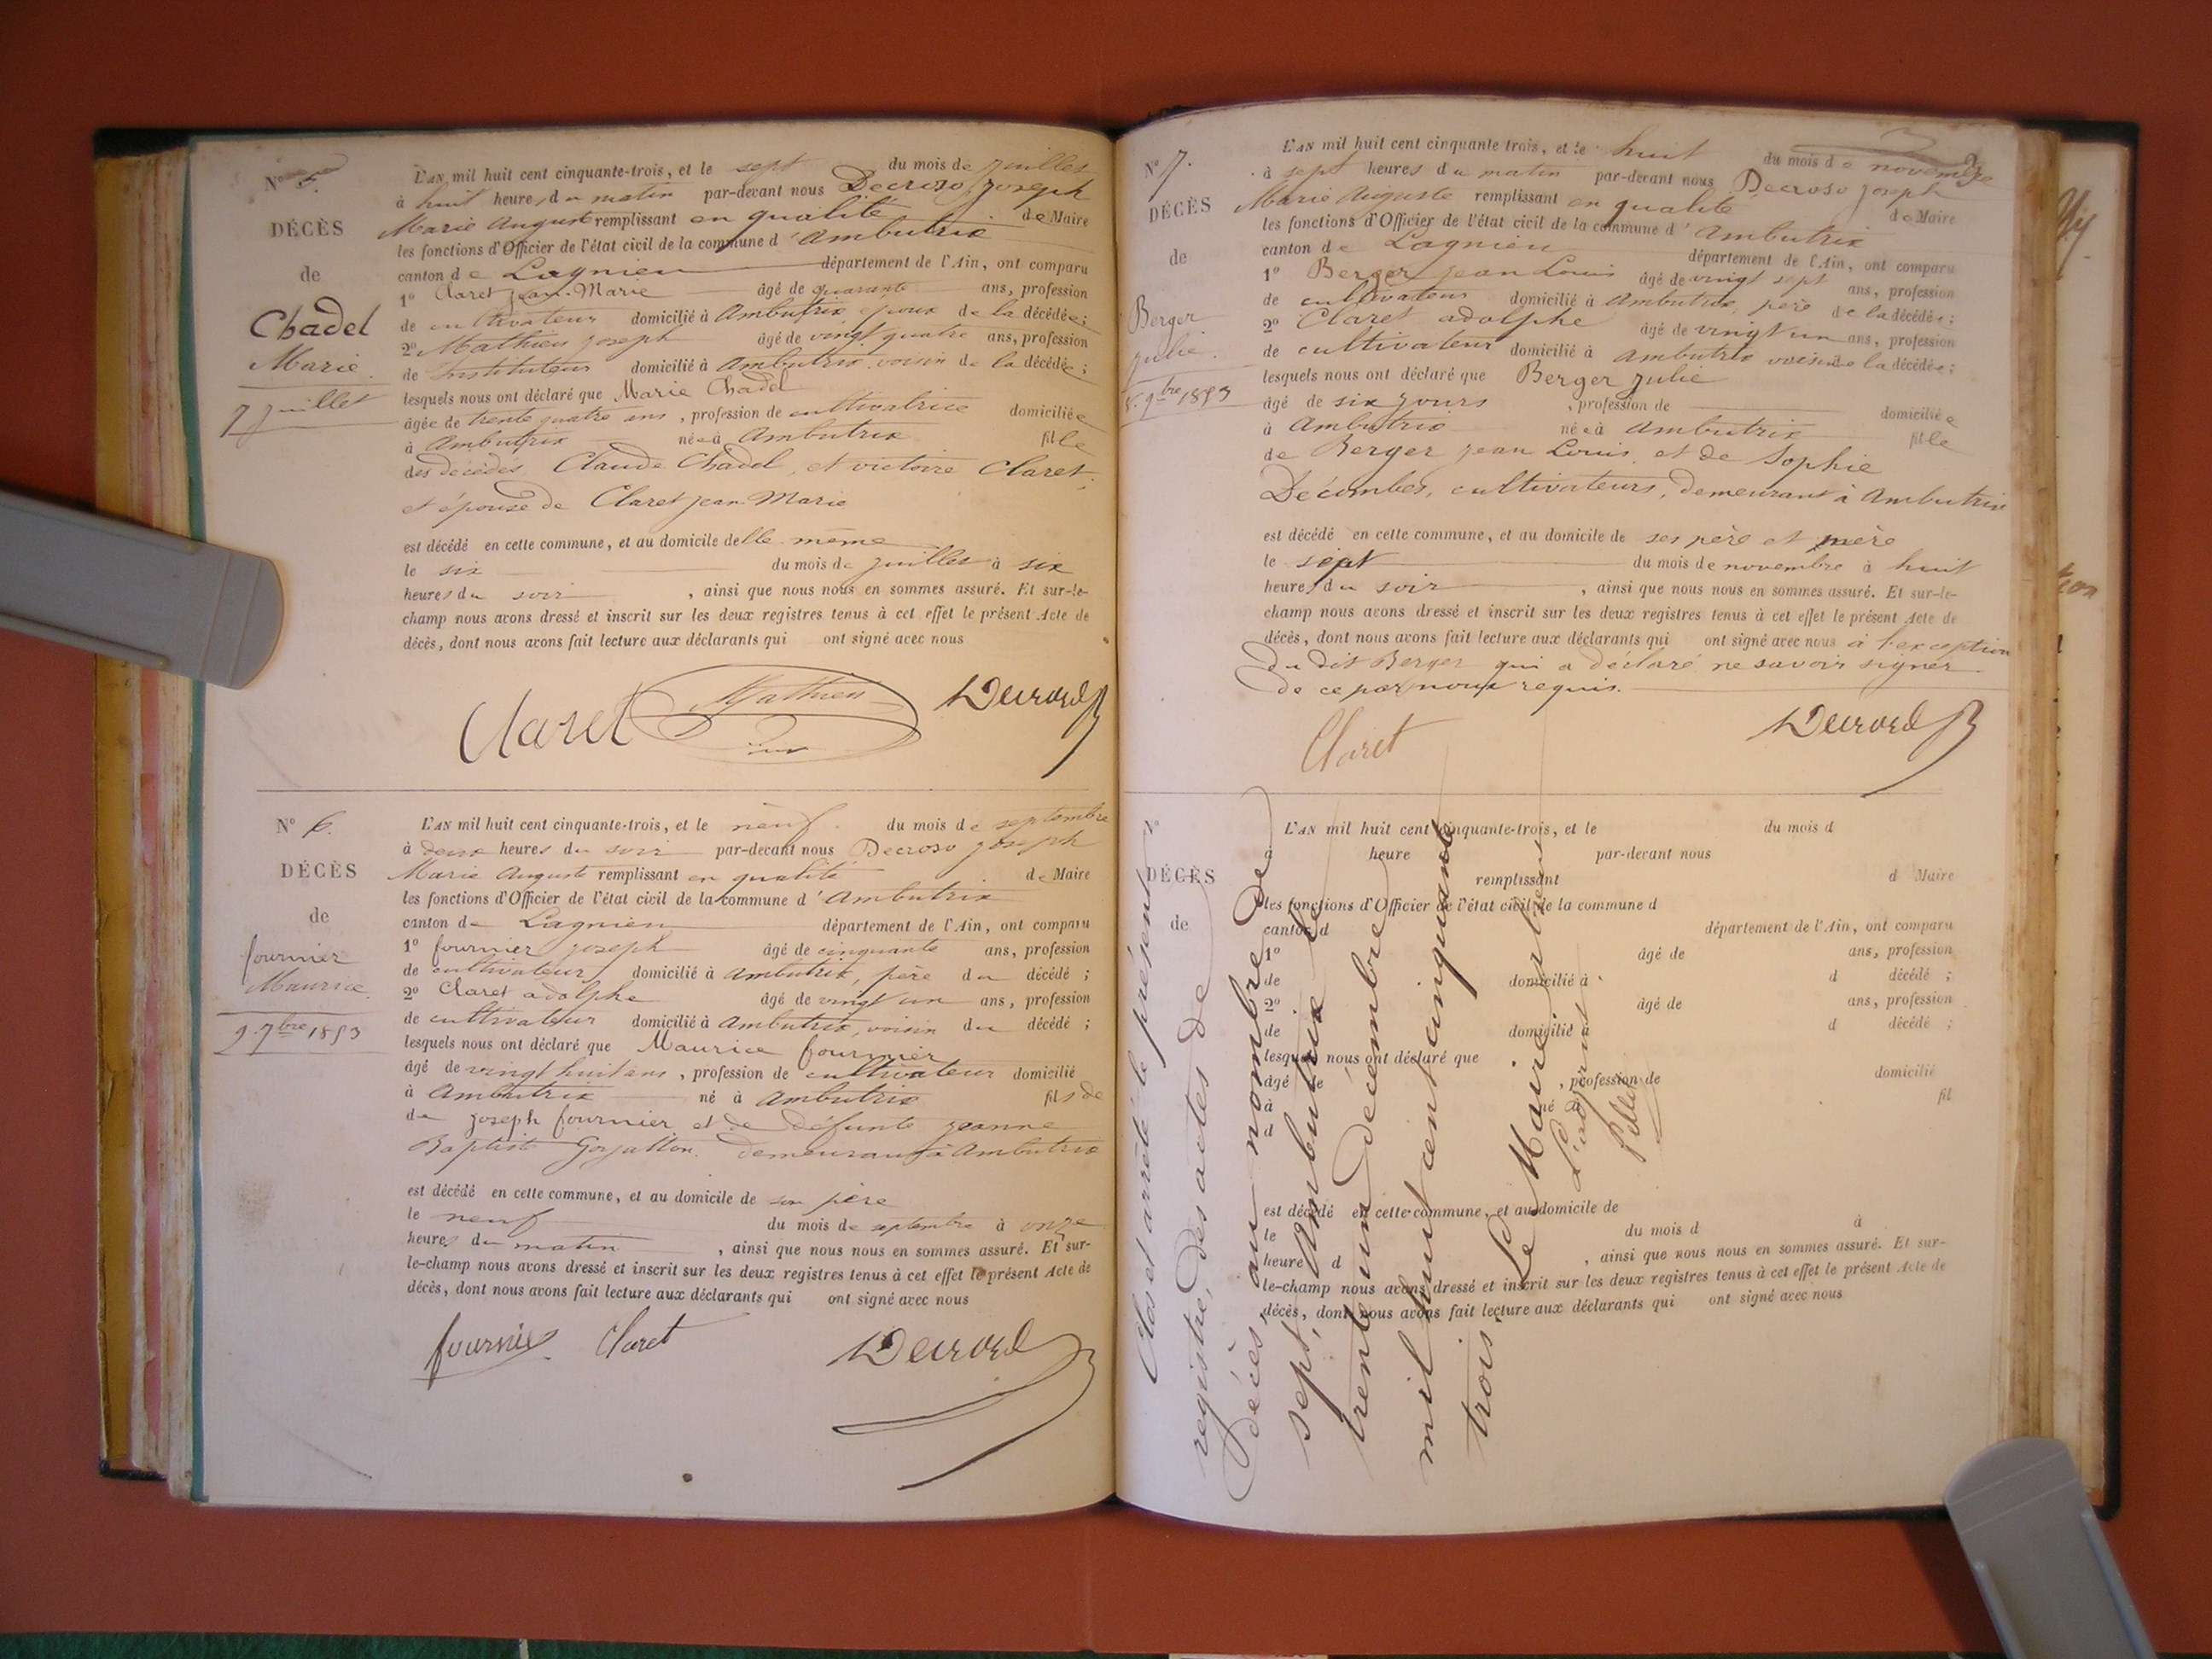 N° 5.
DÉCÈS
de
Chadel
Marie.
7 juillet
L'AN mil huit cent cinquante-trois, et le sept du mois de juillet
à huit heures du matin par-devant nous Decroso Joseph
Marie Auguste remplissant en qualité de Maire
les fonctions d'Officier de l'état civil de la commune d'Ambutrix
canton de Lagnieu département de l'Ain, ont comparu
1° Claret Jean-Marie âgé de quarante ans, profession
de cultivateur domicilié à Ambutrix, époux de la décédée ;
2° Mathieu Joseph âgé de vingt quatre ans, profession
de Instituteur domicilié à Ambutrix voisin de la décédée ;
lesquels nous ont déclaré que Marie Chadel
âgée de trente quatre ans, profession de cultivatrice domiciliée
à Ambutrix née à Ambutrix fille
des décédés Claude Chadel, et victoire Claret,
et épouse de Claret Jean Marie
est décédé en cette commune, et au domicile delle même
le six du mois de juillet à six
heures du soir, ainsi que nous nous en sommes assuré. Et sur-le-
champ nous avons dressé et inscrit sur les deux registres tenus à cet effet le présent Acte de
décès, dont nous avons fait lecture aux déclarants qui ont signé avec nous
Claret Mathieu Decroso
N° 6.
DÉCÈS
de
fournier
Maurice.
9 7bre 1853
L'AN mil huit cent cinquante-trois, et le neuf du mois de septembre
à deux heures du soir par-devant nous Decroso Joseph
Marie Auguste remplissant en qualité de Maire
les fonctions d'Officier de l'état civil de la commune d'Ambutrix
canton de Lagnieu département de l'Ain, ont comparu
1° fournier Joseph âgé de cinquante ans, profession
de cultivateur domicilié à Ambutrix, père du décédé ;
2° Claret adolphe âgé de vingt un ans, profession
de cultivateur domicilié à Ambutrix, voisin du décédé ;
lesquels nous ont déclaré que Maurice fournier
âgé de vingt huit ans, profession de cultivateur domicilié
à Ambutrix né à Ambutrix fils de
de Joseph fournier et de défunte Jeanne
Baptiste demeurant à Ambutrix
est décédé en cette commune, et au domicile de son père
le neuf du mois de septembre à onze
heures du matin, ainsi que nous nous en sommes assuré. Et sur-
le-champ nous avons dressé et inscrit sur les deux registres tenus à cet effet le présent Acte de
décès, dont nous avons fait lecture aux déclarants qui ont signé avec nous
fournier Claret Decroso
N° 7.
DÉCÈS
de
Berger
Julie.
8. 9bre 1853
L'AN mil huit cent cinquante trois, et le huit du mois de novembre
à sept heures du matin par-devant nous Decroso Joseph
Marie Auguste remplissant en qualité de Maire
les fonctions d'Officier de l'état civil de la commune d'Ambutrix
canton de Lagnieu département de l'Ain, ont comparu
1° Berger Jean Louis âgé de vingt sept ans, profession
de cultivateur domicilié à Ambutrix, père de la décédée ;
2° Claret adolphe âgé de vingt un ans, profession
de cultivateur domicilié à Ambutrix voisin de la décédée ;
lesquels nous ont déclaré que Berger Julie
âgé de six jours, profession de domiciliée
à Ambutrix née à Ambutrix fille
de Berger Jean Louis et de Sophie
Décombes, cultivateurs, demeurant à Ambutrix
est décédé en cette commune, et au domicile de ses père et mère
le sept du mois de novembre à huit
heures du soir, ainsi que nous nous en sommes assuré. Et sur-le-
champ nous avons dressé et inscrit sur les deux registres tenus à cet effet le présent Acte de
décès, dont nous avons fait lecture aux déclarants qui ont signé avec nous à l'exception
du dit Berger qui a déclaré ne savoir signer
de ce par nous requis.
Claret Decroso
N°
DÉCÈS
de
L'AN mil huit cent cinquante-trois, et le du mois d
à heure par-devant nous
remplissant d Maire
les fonctions d'Officier de l'état civil de la commune d
canton d département de l'Ain, ont comparu
1° âgé de ans, profession
de domicilié à d décédé ;
2° âgé de ans, profession
de domicilié d décédé ;
lesquels nous ont déclaré que
âgé de, profession de domicilié
à né à fil
d
est décédé en cette commune, et au domicile de
le du mois d à
heure d, ainsi que nous nous en sommes assuré. Et sur-
le-champ nous avons dressé et inscrit sur les deux registres tenus à cet effet le présent Acte de
décès, dont nous avons fait lecture aux déclarants qui ont signé avec nous
Clos et arrêté le présent
registre, des actes de
décès, au nombre de
sept, Ambutrix le
trente un décembre
mil huit cent cinquante
trois.
Le Maire absent
L'adjoint